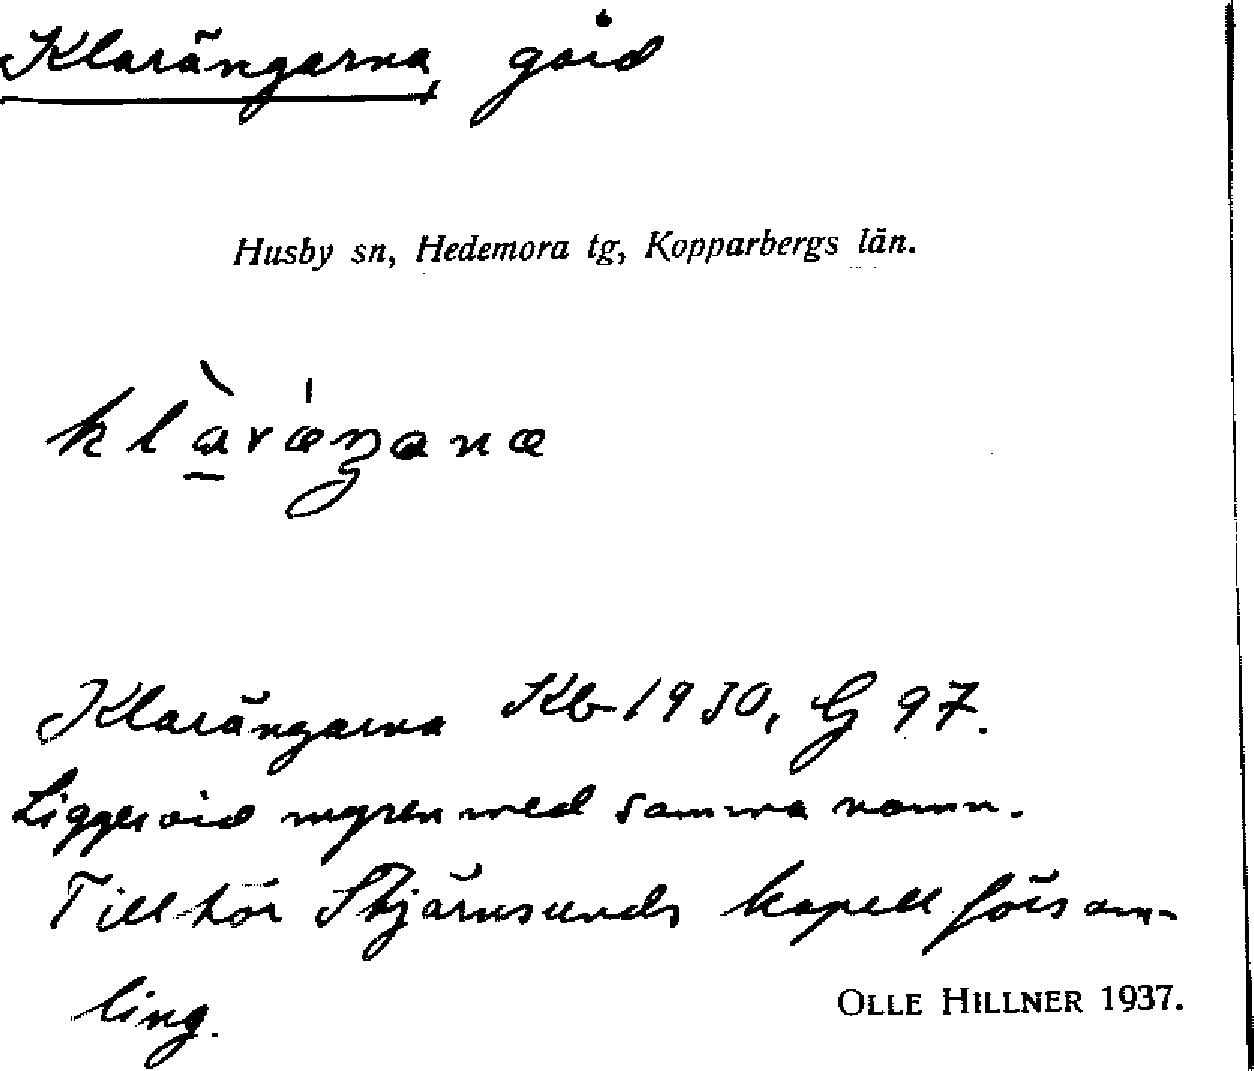 Klarängarna, gård
Husby sn, Hedemora tg, Kopparbergs län.
Klarängarna Kb 1930, G 97.
Ligger vid myren med samma namn.
Tillhör Stjärnsunds kapellförsam-
ling.
OLLE HILLNER 1937.